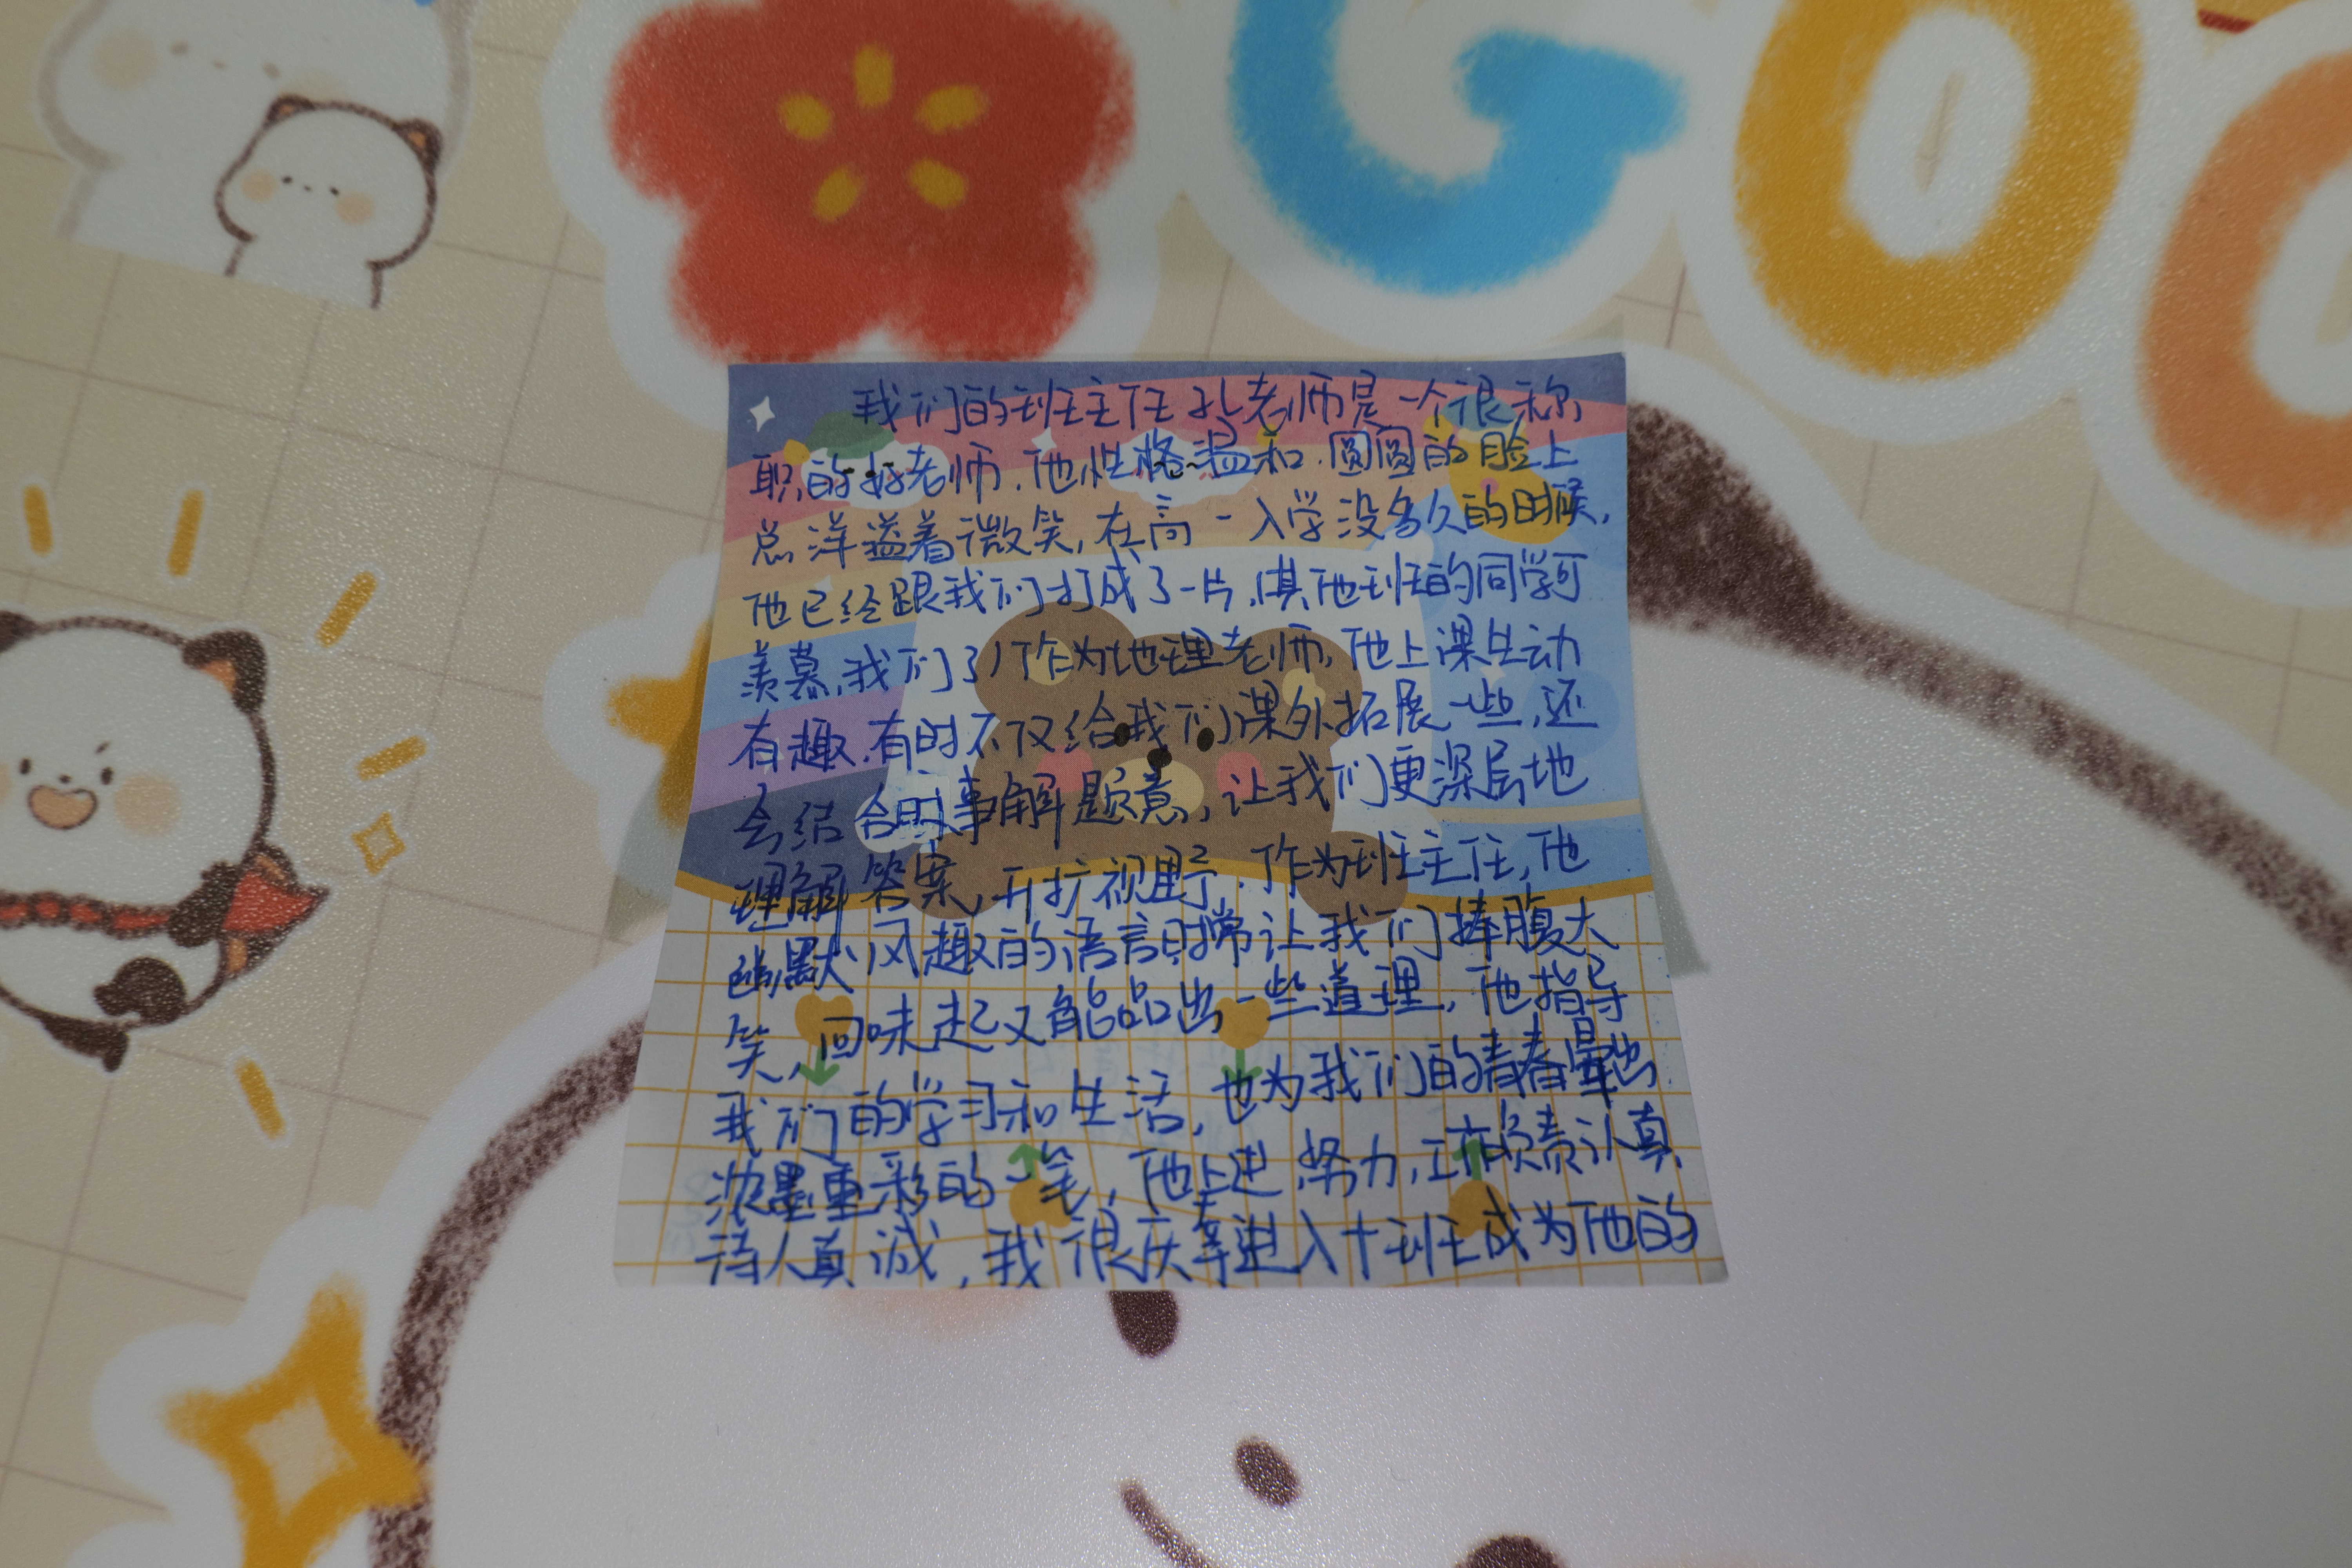 GOO
我们的班主任孔老师是一个很称
职的好老师.他性格温和.圆圆的脸上
总洋溢着微笑,在高一入学没多久的时候,
他已经跟我们打成了一片,其他班的同学可
羡慕我们了!作为地理老师,他上课生动
有趣.有时不仅给我们课外拓展一些,还
会结合时事解题意,让我们更深层地
理解答案,开扩视野.作为班主任,他
幽默风趣的语言时常让我们捧腹大
笑,回味起又能品出一些道理,他指导
我们的学习和生活,也为我们的青春晕出
浓墨重彩的一笔,他上进,努力,工作负责认真
待人真诚,我很庆幸进入十班成为他的